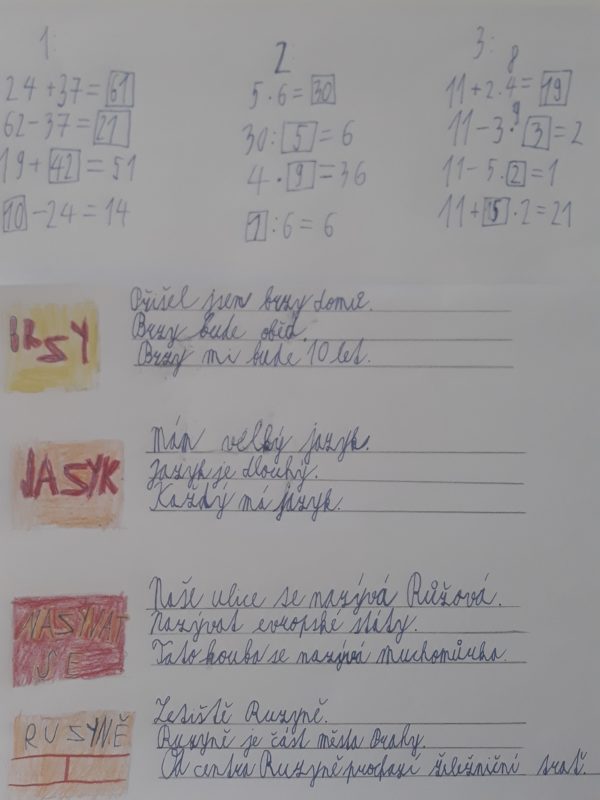 1:
24+37=61
62-37=21
19+42=51
10-24=14
2
5·6=30
30:5=6
4·9=36
1:6=6
3:
8
11+2·4=19
9
11-3·3=2
11-5·2=1
11+5·2=21
BRSY
Přišel jsem brzy domů.
Brzy bude oběd.
Brzy mi bude 10 let.
JASYK
Mám velký jazyk.
Jazyk je dlouhý.
Každy má jazyk.
NASÝVAT
SE
Naše ulice se nazývá Růžová.
Nazývat evropské státy.
Tato houba se nazývá muchomůrka.
RUSYNĚ
Letiště Ruzyně.
Ruzyně je část města Prahy.
Od centra Ruzyně prochazí železniční trať.